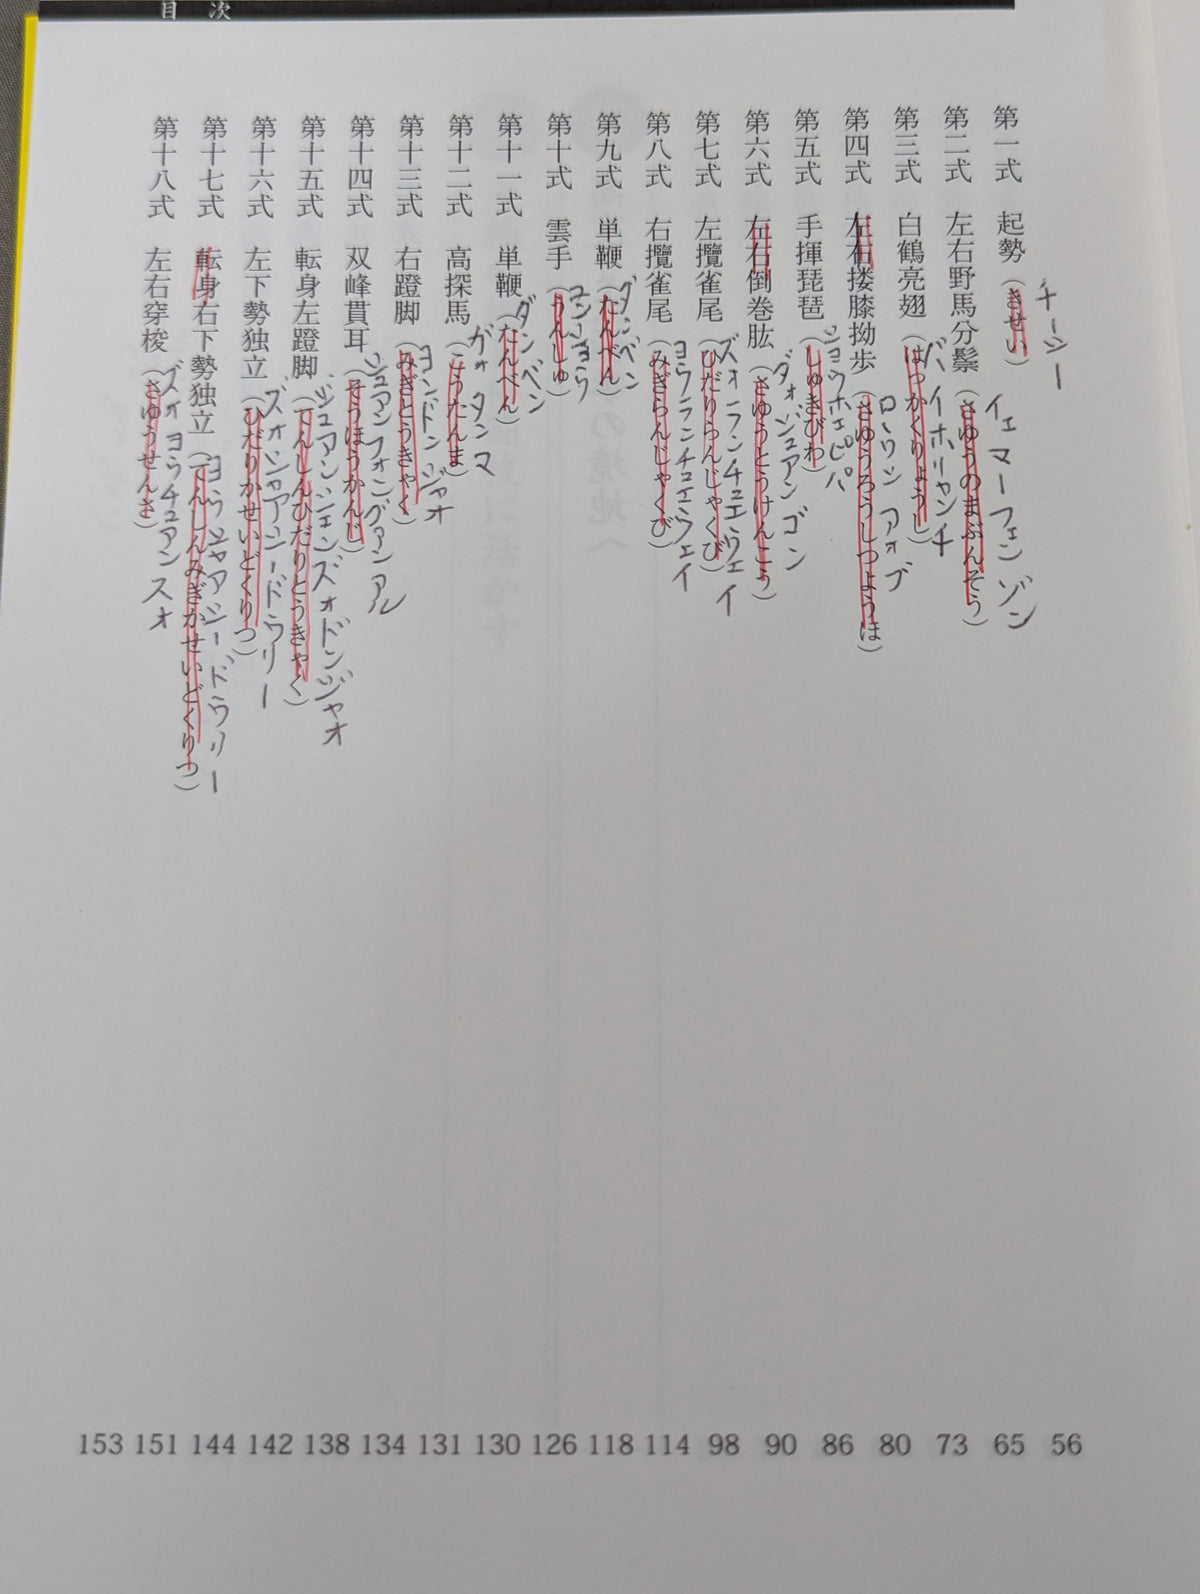 目次
第一式 起勢（きせい）
チーシー
第二式 左右野馬分鬃（さゆうのまぶんそう）
イェマーフェンゾン
第三式 白鶴亮翅（はっかくりょうし）
バイホリャンチ
第四式 左右搂膝拗歩（さゆうろうしつようほ）
ロウシアオブ
第五式 手揮琵琶（しゅきびわ）
ショウホェピパ
第六式 左右倒巻肱（さゆうとうけんこう）
ダォジュアンゴン
第七式 左攬雀尾（ひだりらんじゃくび）
ズォランチュエウェイ
第八式 右攬雀尾（みぎらんじゃくび）
ヨウランチュエウェイ
第九式 単鞭（たんべん）
ダンベン
第十式 雲手（うんしゅ）
第十一式 単鞭（たんべん）
ダンベン
第十二式 高探馬（こうたんま）
ガォタンマ
第十三式 右蹬脚（みぎとうきゃく）
ヨンドンジャオ
第十四式 双峰貫耳（そうほうかんじ）
シュアンフォングアンアル
第十五式 転身左蹬脚（てんしんひだりとうきゃく）
ジュアンシェンズォドンジャオ
第十六式 左下勢独立（ひだりかせいどくりつ）
ズォシャアシードウリー
第十七式 転身右下勢独立（てんしんみぎかせいどくりつ）
ヨウシャアシードウリー
第十八式 左右穿梭（さゆうせんさ）
ズォヨウチュアンスォ
153 151 144 142 138 134 131 130 126 118 114 98 90 86 80 73 65 56